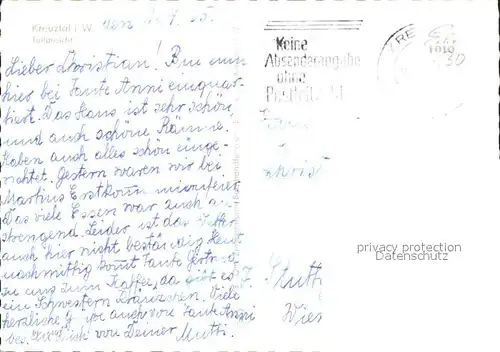 Kreuztal i. W.
Teilansicht
den
Lieber Christian! Bin nun
hier bei Tante Anni einquar-
tiert. Das Haus ist sehr schön
und auch schöne Räume.
Haben auch alles schön einge-
richtet. Gestern waren wir bei
Martins Erstkommunionfeier
Das viele Essen war auch an-
strengend. Leider ist das Wetter
auch hier nicht beständig. Heut
nachmittag kommt Tante Gertrud
zu uns zum Kaffee, da gibt es
ein Schwestern Kränzchen. Viele
herzliche auch von Tante Anni
bes. Dich von Deiner Mutti.
Keine
Absenderangabe
ohne
Postleitzahl
KRE
privacy protection
Datenschutz
Wies